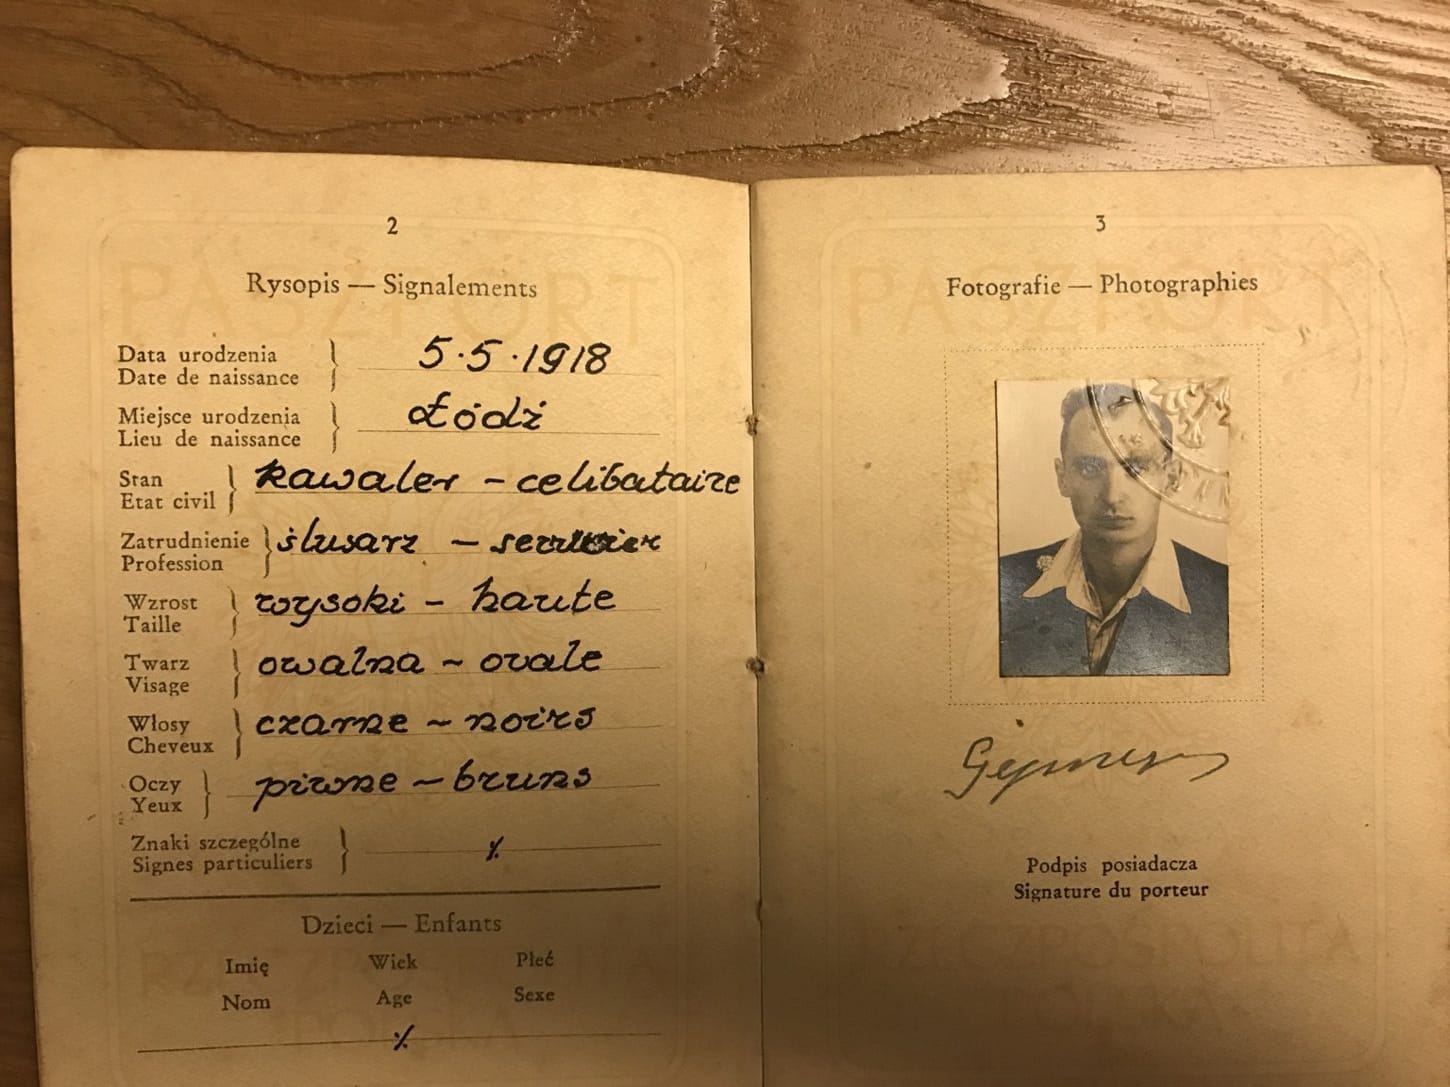 2
Rysopis — Signalements
Data urodzenia
Date de naissance
5.5.1918
Miejsce urodzenia
Lieu de naissance
Łódź
Stan
Etat civil
kawaler – celibataire
Zatrudnienie
Profession
ślusarz –
Wzrost
Taille
wysoki – haute
Twarz
Visage
owalna ~ ovale
Włosy
Cheveux
czarne ~ noirs
Oczy
Yeux
piwne – bruns
Znaki szczególne
Signes particuliers
٪
Dzieci — Enfants
Imię Wiek Płeć
Nom Age Sexe
٪
PASZPORT
RZECZPOSPOLITA
POLSKA
3
Fotografie — Photographies
Podpis posiadacza
Signature du porteur
PASZPORT
RZECZPOSPOLITA
POLSKA